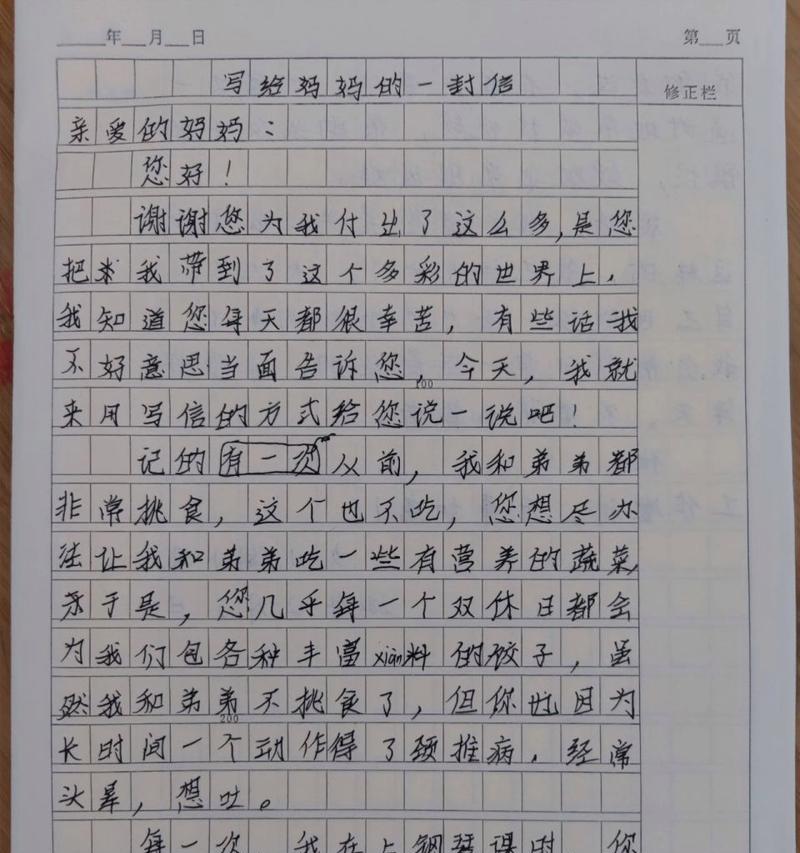 年 月 日 第 页
写给妈妈的一封信
修正栏
亲爱的妈妈：
您好！
谢谢您为我付出了这么多，是您
把我带到了这个多彩的世界上，
我知道您每天都很辛苦，有些话我
不好意思当面告诉您，今天，我就
100
来用写信的方式给您说一说吧！
记的有一次从前，我和弟弟都
非常挑食，这个也不吃，您想尽办
法让我和弟弟吃一些有营养的蔬菜，
于是，您几乎每一个双休日都会
为我们包各种丰富xiàn料的饺子，虽
然我和弟弟不挑食了，但你也因为
200
长时间一个动作得了颈椎病，经常
头晕，想吐。
每一次，我在上钢琴课时，您